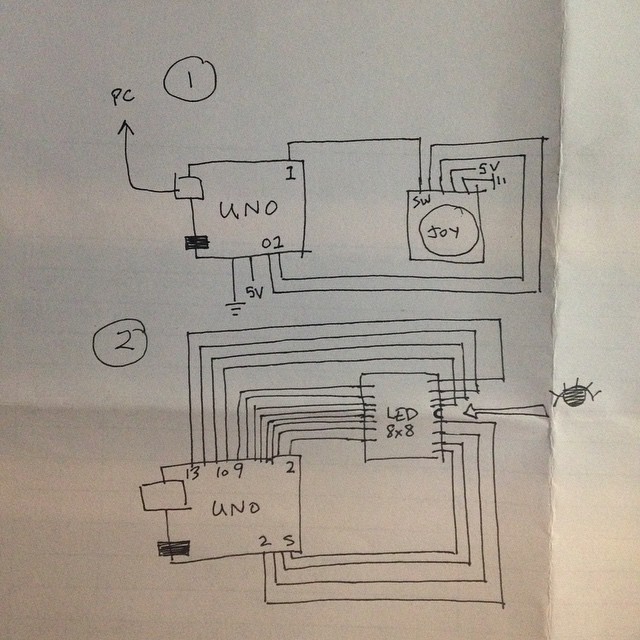 1
PC
1
5V
SW
UNO
JOY
01
5V
2
LED
8x8
13 10 9 2
UNO
2 5